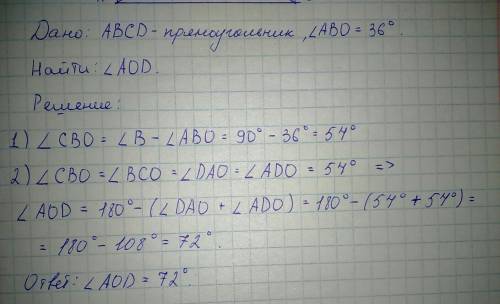 Дано: ABCD - прямоугольник, ∠ABO = 36°.
Найти: ∠AOD.
Решение:
1) ∠CBO = ∠B - ∠ABO = 90° - 36° = 54°
2) ∠CBO = ∠BCO = ∠DAO = ∠ADO = 54° =>
∠AOD = 180° - (∠DAO + ∠ADO) = 180° - (54° + 54°) =
= 180° - 108° = 72°.
Ответ: ∠AOD = 72°.